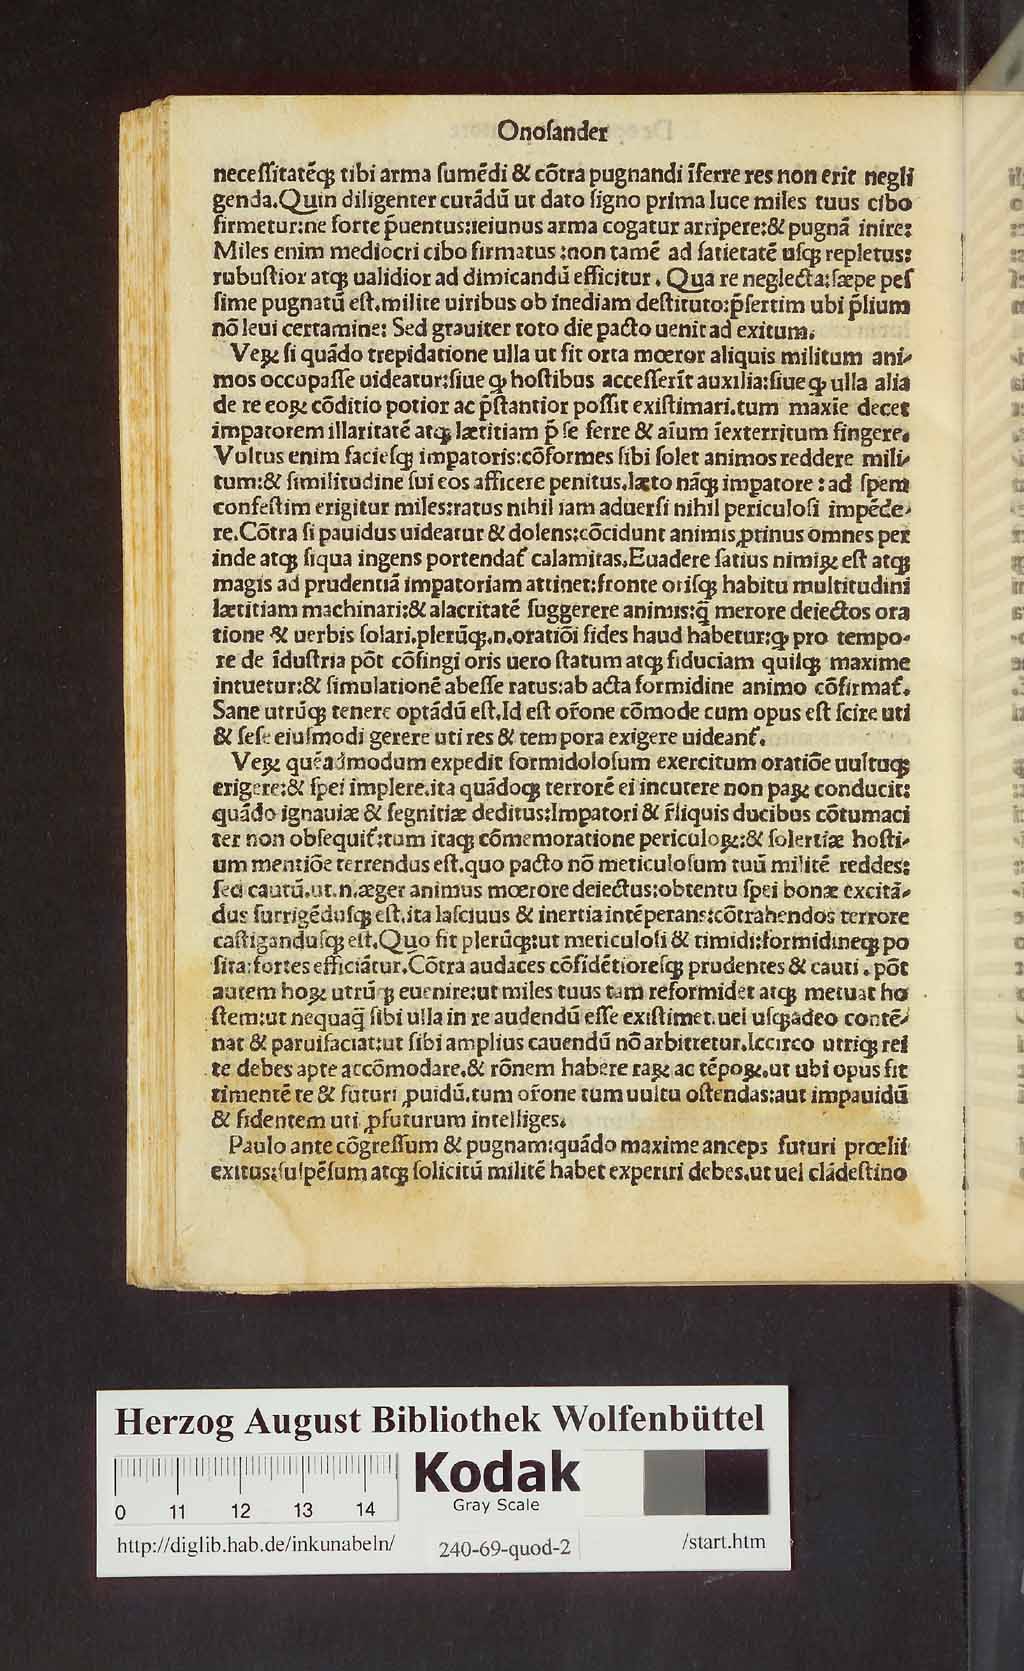 Onoſander
neceſſitatēqꝫ tibi arma ſumēdi & cōtra pugnandi īferre res non erit negli
genda.Quin diligenter curādū ut dato ſigno prima luce miles tuus cibo
firmetur:ne forte p̄uentus:ieiunus arma cogatur arripere:& pugnā inire:
Miles enim mediocri cibo firmatus :non tamē ad ſatietatē uſqꝫ repletus:
rubuſtior atqꝫ ualidior ad dimicandū efficitur. Qua re neglecta:ſæpe peſ
ſime pugnatū eſt.milite uiribus ob inediam deſtituto:p̄ſertim ubi p̄lium
nō leui certamine: Sed grauiter toto die pacto uenit ad exitum.
Veꝝ ſi quādo trepidatione ulla ut fit orta mœror aliquis militum ani-
mos occupaſſe uideatur:ſiue ꝙ hoſtibus acceſſerīt auxilia:ſiue ꝙ ulla alia
de re eoꝝ cōditio potior ac p̄ſtantior poſſit exiſtimari.tum maxīe decet
impatorem illaritatē atqꝫ lætitiam p̄ ſe ferre & aīum īexterritum fingere.
Vultus enim facieſqꝫ impatoris:cōformes ſibi ſolet animos reddere mili-
tum:& ſimilitudine ſui eos afficere penitus.læto nāqꝫ impatore : ad ſpem
confeſtim erigitur miles:ratus nihil iam aduerſi nihil periculoſi impēde-
re.Cōtra ſi pauidus uideatur & dolens:cōcidunt animis ꝓtinus omnes per
inde atqꝫ ſiqua ingens portendat᷑ calamitas.Euadere ſatius nimiꝝ eſt atqꝫ
magis ad prudentiā impatoriam attinet:fronte oriſqꝫ habitu multitudini
lætitiam machinari:& alacritatē ſuggerere animis:q̄ merore deiectos ora
tione & uerbis ſolari.plerūqꝫ.n.oratiōi fides haud habetur:ꝙ pro tempo-
re de īduſtria pōt cōfingi oris uero ſtatum atqꝫ fiduciam quiſqꝫ maxime
intuetur:& ſimulationē abeſſe ratus:ab acta formidine animo cōfirmat᷑.
Sane utrūqꝫ tenere optādū eſt.Id eſt or̄one cōmode cum opus eſt ſcire uti
& ſeſe eiuſmodi gerere uti res & tempora exigere uideant᷑.
Veꝝ quēadmodum expedit formidoloſum exercitum oratiōe uultuqꝫ
erigere:& ſpei implere.ita quādoqꝫ terrorē ei incutere non paꝝ conducit:
quādo ignauiæ & ſegnitiæ deditus:Impatori & r̄liquis ducibus cōtumaci
ter non obſequit᷑:tum itaqꝫ cōmemoratione periculoꝝ:& ſolertiæ hoſti-
um mentiōe terrendus eſt.quo pacto nō meticuloſum tuū militē reddes:
ſed cautū.ut.n.æger animus mœrore deiectus:obtentu ſpei bonæ excitā-
dus ſurrigēduſqꝫ eſt.ita laſciuus & inertia intēperans:cōtrahendos terrore
caſtiganduſqꝫ eſt.Quo fit plerūqꝫ:ut meticuloſi & timidi:formidineqꝫ po
ſita:fortes efficiātur.Cōtra audaces cōfidētioreſqꝫ prudentes & cauti . pōt
autem hoꝝ utrūqꝫ euenire:ut miles tuus tam reformidet atqꝫ metuat ho
ſtem:ut nequaq̄ ſibi ulla in re audendū eſſe exiſtimet.uel uſqꝫadeo contē-
nat & paruifaciat:ut ſibi amplius cauendū nō arbitretur.Iccirco utriqꝫ rei
te debes apte accōmodare.& rōnem habere raꝝ ac tēpoꝝ.ut ubi opus fit
timentē te & futuri ꝓuidū.tum or̄one tum uultu oſtendas:aut impauidū
& fidentem uti ꝓfuturum intelliges.
Paulo ante cōgreſſum & pugnam:quādo maxime anceps futuri prœlii
exitus:ſuſpēſum atqꝫ ſolicitū militē habet experiri debes.ut uel clādeſtino
Herzog August Bibliothek Wolfenbüttel
0 11 12 13 14
Kodak
Gray Scale
http://diglib.hab.de/inkunabeln/ 240-69-quod-2 /start.htm